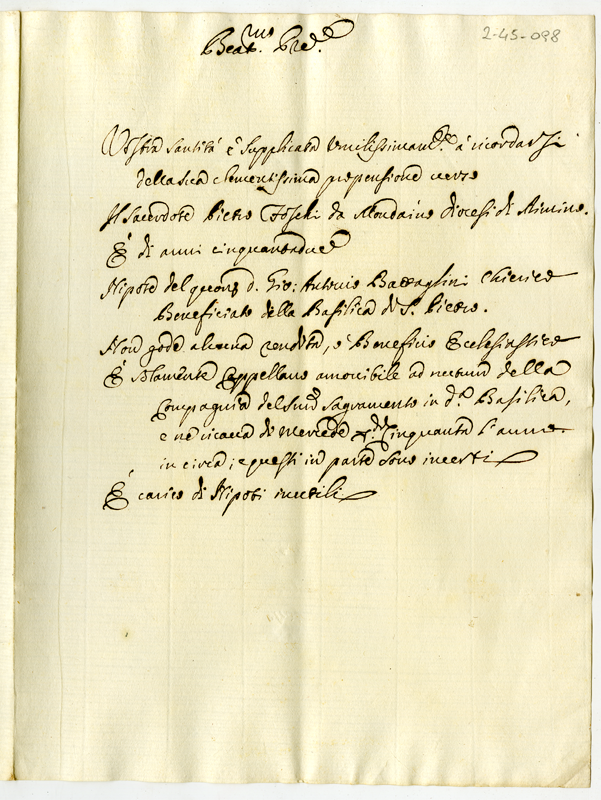 2-45-098
Beat.mo Pre.
Vostra Santità è supplicata umilissimam.te à ricordarsi
della sua clementissima propensione verso
Il Sacerdote Pietro Foschi da Mondaino diocesi di Rimino.
È di anni cinquantadue
Nipote del quond. D. Gio: Antonio Battaglini Chierico
Beneficiato della Basilica di S. Pietro.
Non gode alcuna rendita, ò Beneficio Ecclesiastico
È solamente Cappellano amovibile ad nutum della
Compagnia del SSmo Sagramento in d.a Basilica,
e ne ricava di mercede cinquanta l'anno
in circa; e questi in parte sono incerti
È carico di Nipoti inutili